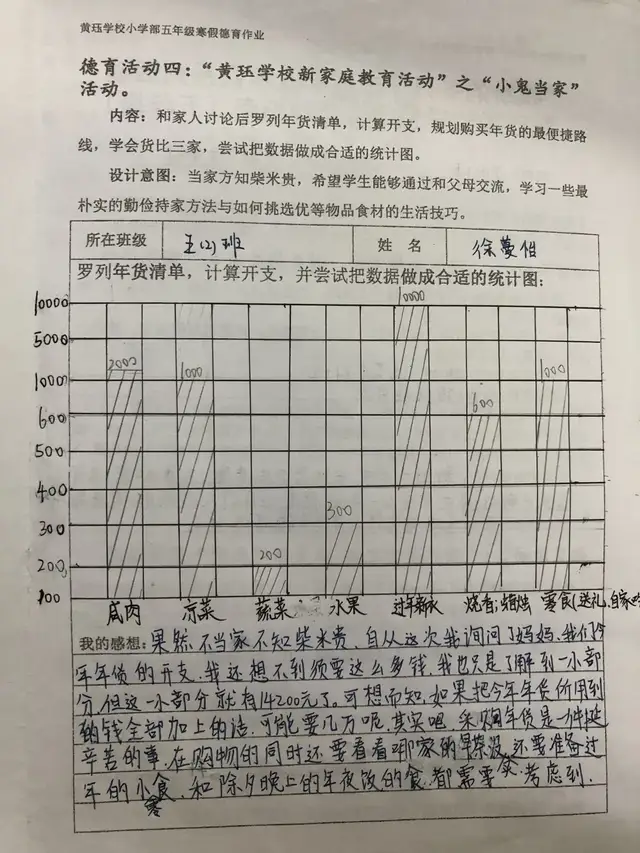 黄珏学校小学部五年级寒假德育作业
德育活动四：“黄珏学校新家庭教育活动”之“小鬼当家”
活动。
内容：和家人讨论后罗列年货清单，计算开支，规划购买年货的最便捷路
线，学会货比三家，尝试把数据做成合适的统计图。
设计意图：当家方知柴米贵，希望学生能够通过和父母交流，学习一些最
朴实的勤俭持家方法与如何挑选优等物品食材的生活技巧。
所在班级 五(2)班 姓 名 徐蔓
罗列年货清单，计算开支，并尝试把数据做成合适的统计图：
10000
10000
5000
2000 1000 1000
1000
600
600
500
400
300
300
200
200
100
咸肉 凉菜 蔬菜 水果 过年新衣 烧香,蜡烛 零食(送礼,自家吃
我的感想：果然不当家不知柴米贵，自从这次我询问了妈妈,我们今
年年货的开支，我还想不到须要这么多钱，我也只是了解到一小部
分，但这一小部分就有14200元了。可想而知，如果把今年年货所用到
的钱全部加上的话，可能要几万呢，其实吧，采购年货是一件挺
辛苦的事，在购物的同时还要看看哪家的 还要准备过
年的小零食，和除夕晚上的年夜饭的食，都需要 考虑到.